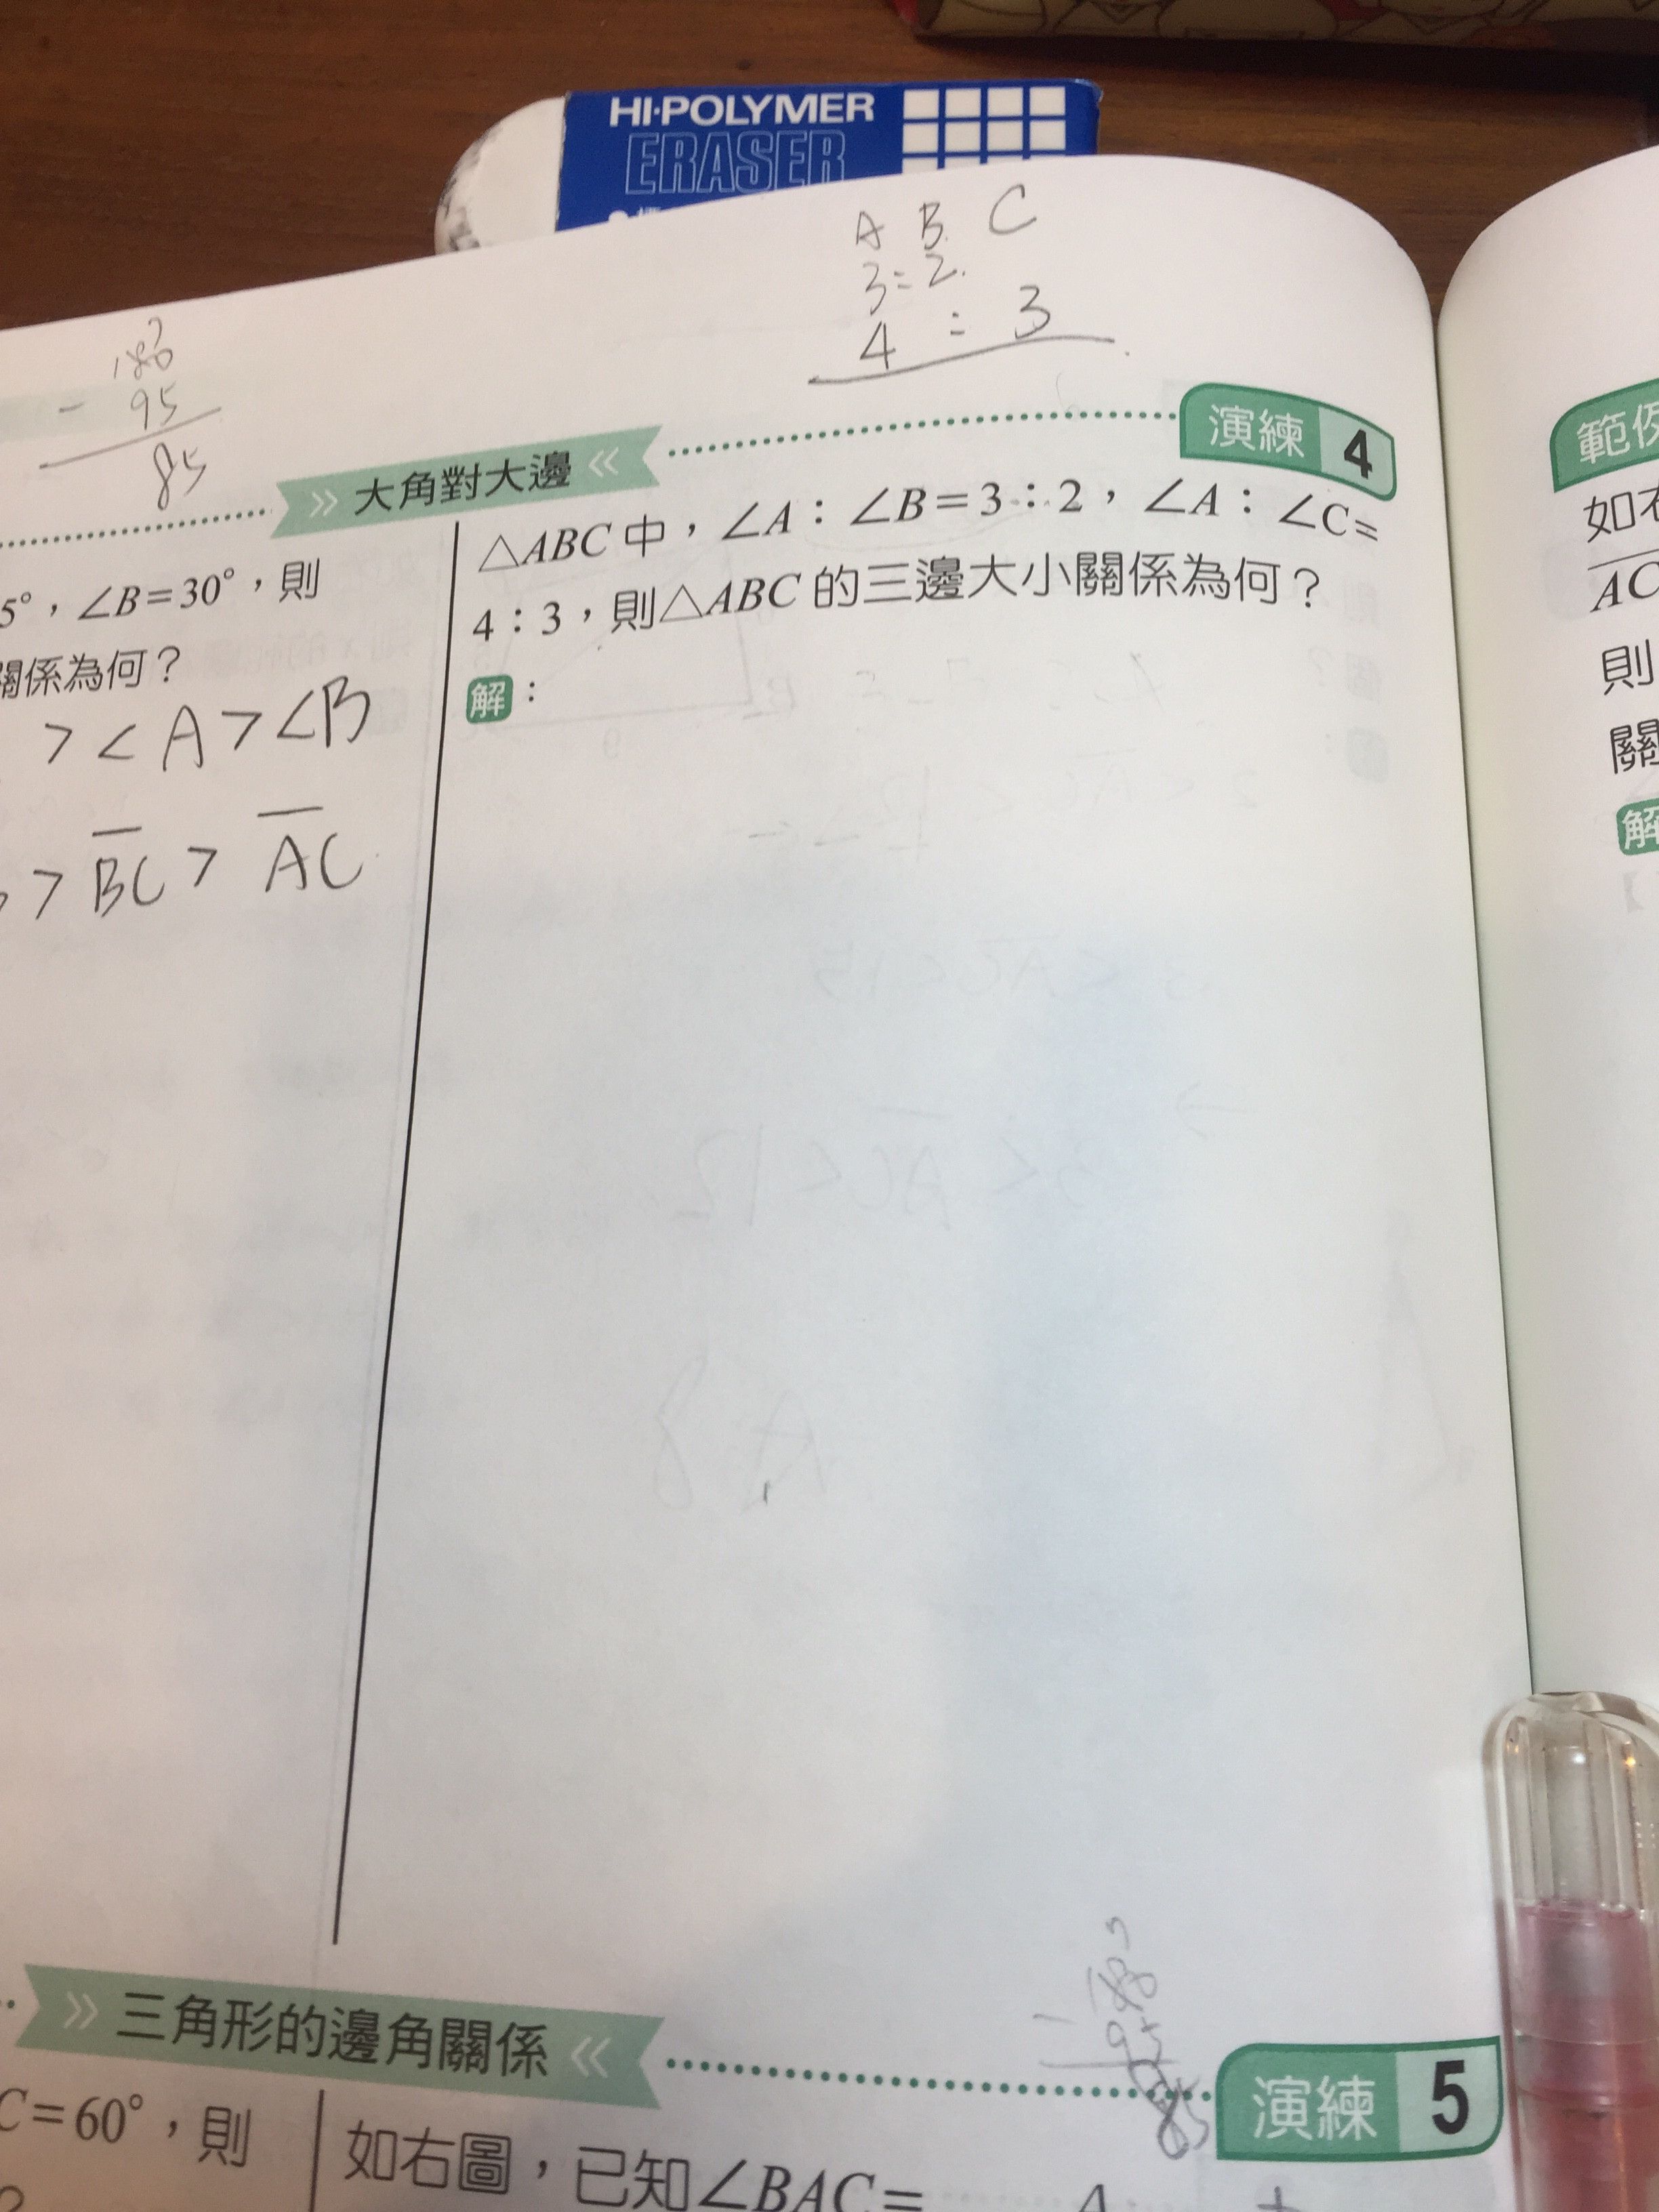 HI-POLYMER
ERASER
A B C
3:2
4:3
180
- 95
85
大角對大邊
演練 4
5°，∠B=30°，則
關係為何？
>∠A>∠B
>BC>AC
△ABC中，∠A：∠B=3：2，∠A：∠C=
4：3，則△ABC的三邊大小關係為何？
解：
範例
如
AC
則
關
解
三角形的邊角關係
演練 5
85
C=60°，則
如右圖，已知∠BAC=